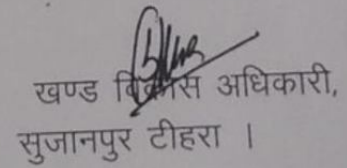 खण्ड विकास अधिकारी,
सुजानपुर टीहरा ।